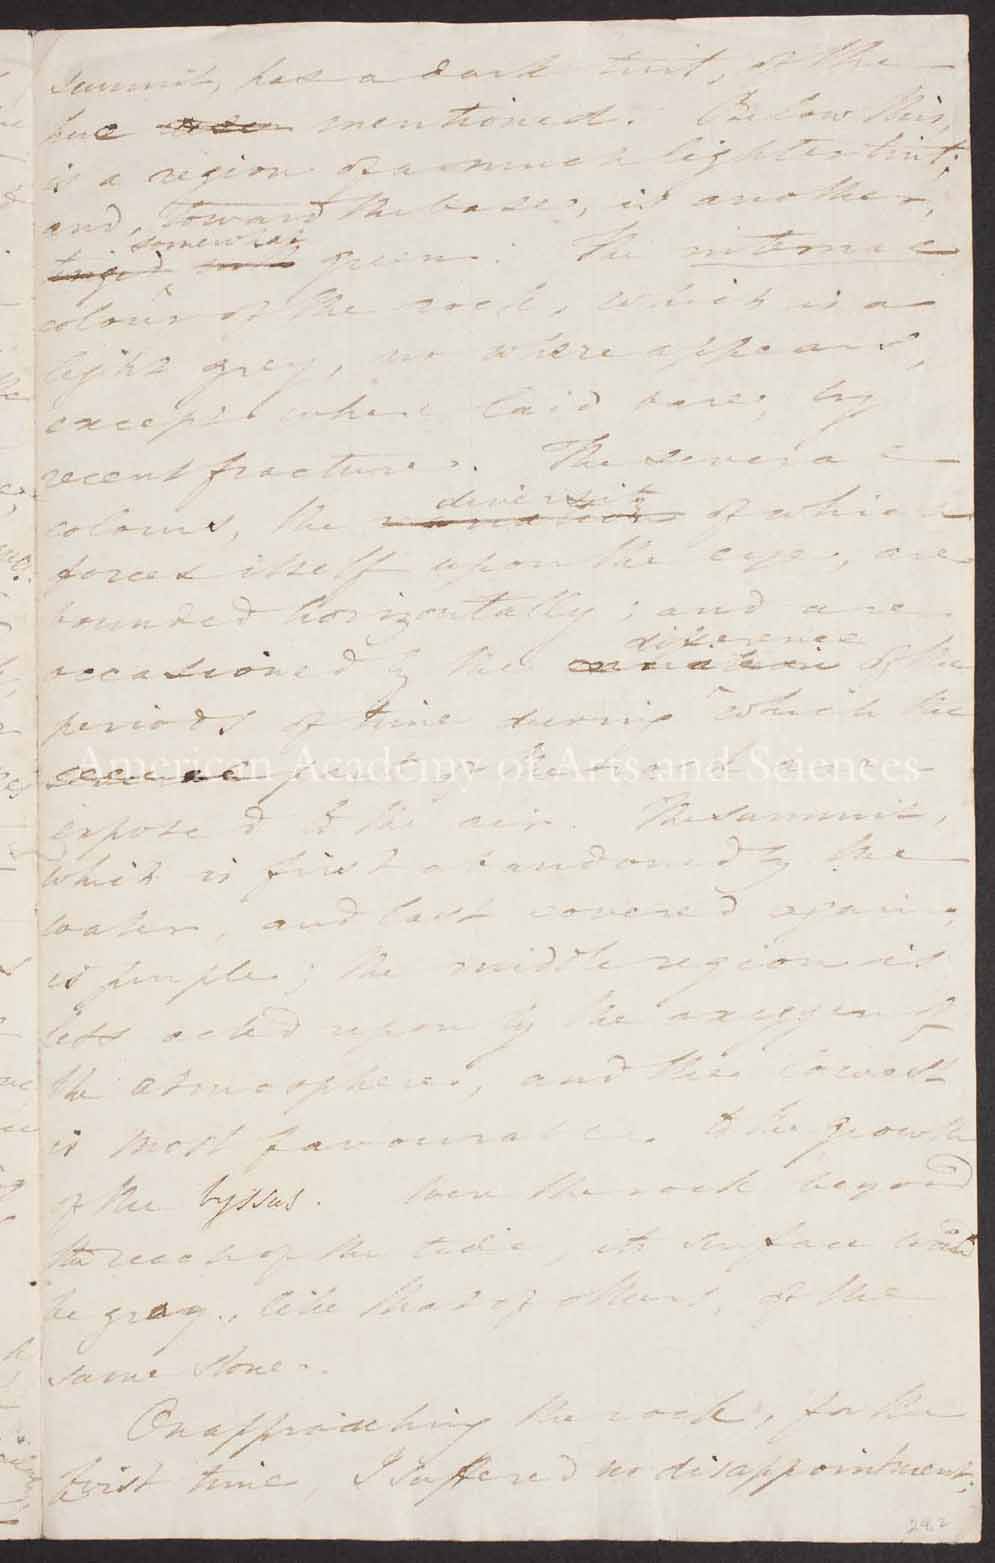 summit, has a dark tint, of the
hue mentioned. Below this,
is a region of a much lighter tint;
and, toward the base, is another,
somewhat
green. The internal
colour of the rock, which is a
light grey, no where appears,
except when laid bare, by
recent fracture. The several
diversity
colours, the of which
forces itself upon the eye, are
bounded horizontally; and are
difference
occasioned by the of the
periods of time during which the
several parts of the rock are
exposed to the air. The summit,
which is first abandoned by the
water, and last covered again,
is purple; the middle region is
less acted upon by the oxygen of
the atmosphere, and the lowest
is most favourable to the growth
of the byssus. Were the rock beyond
the reach of the tide, its surface would
be gray, like that of others, of the
same stone.
On approaching the rock, for the
first time, I suffered no disappointment;
American Academy of Arts and Sciences